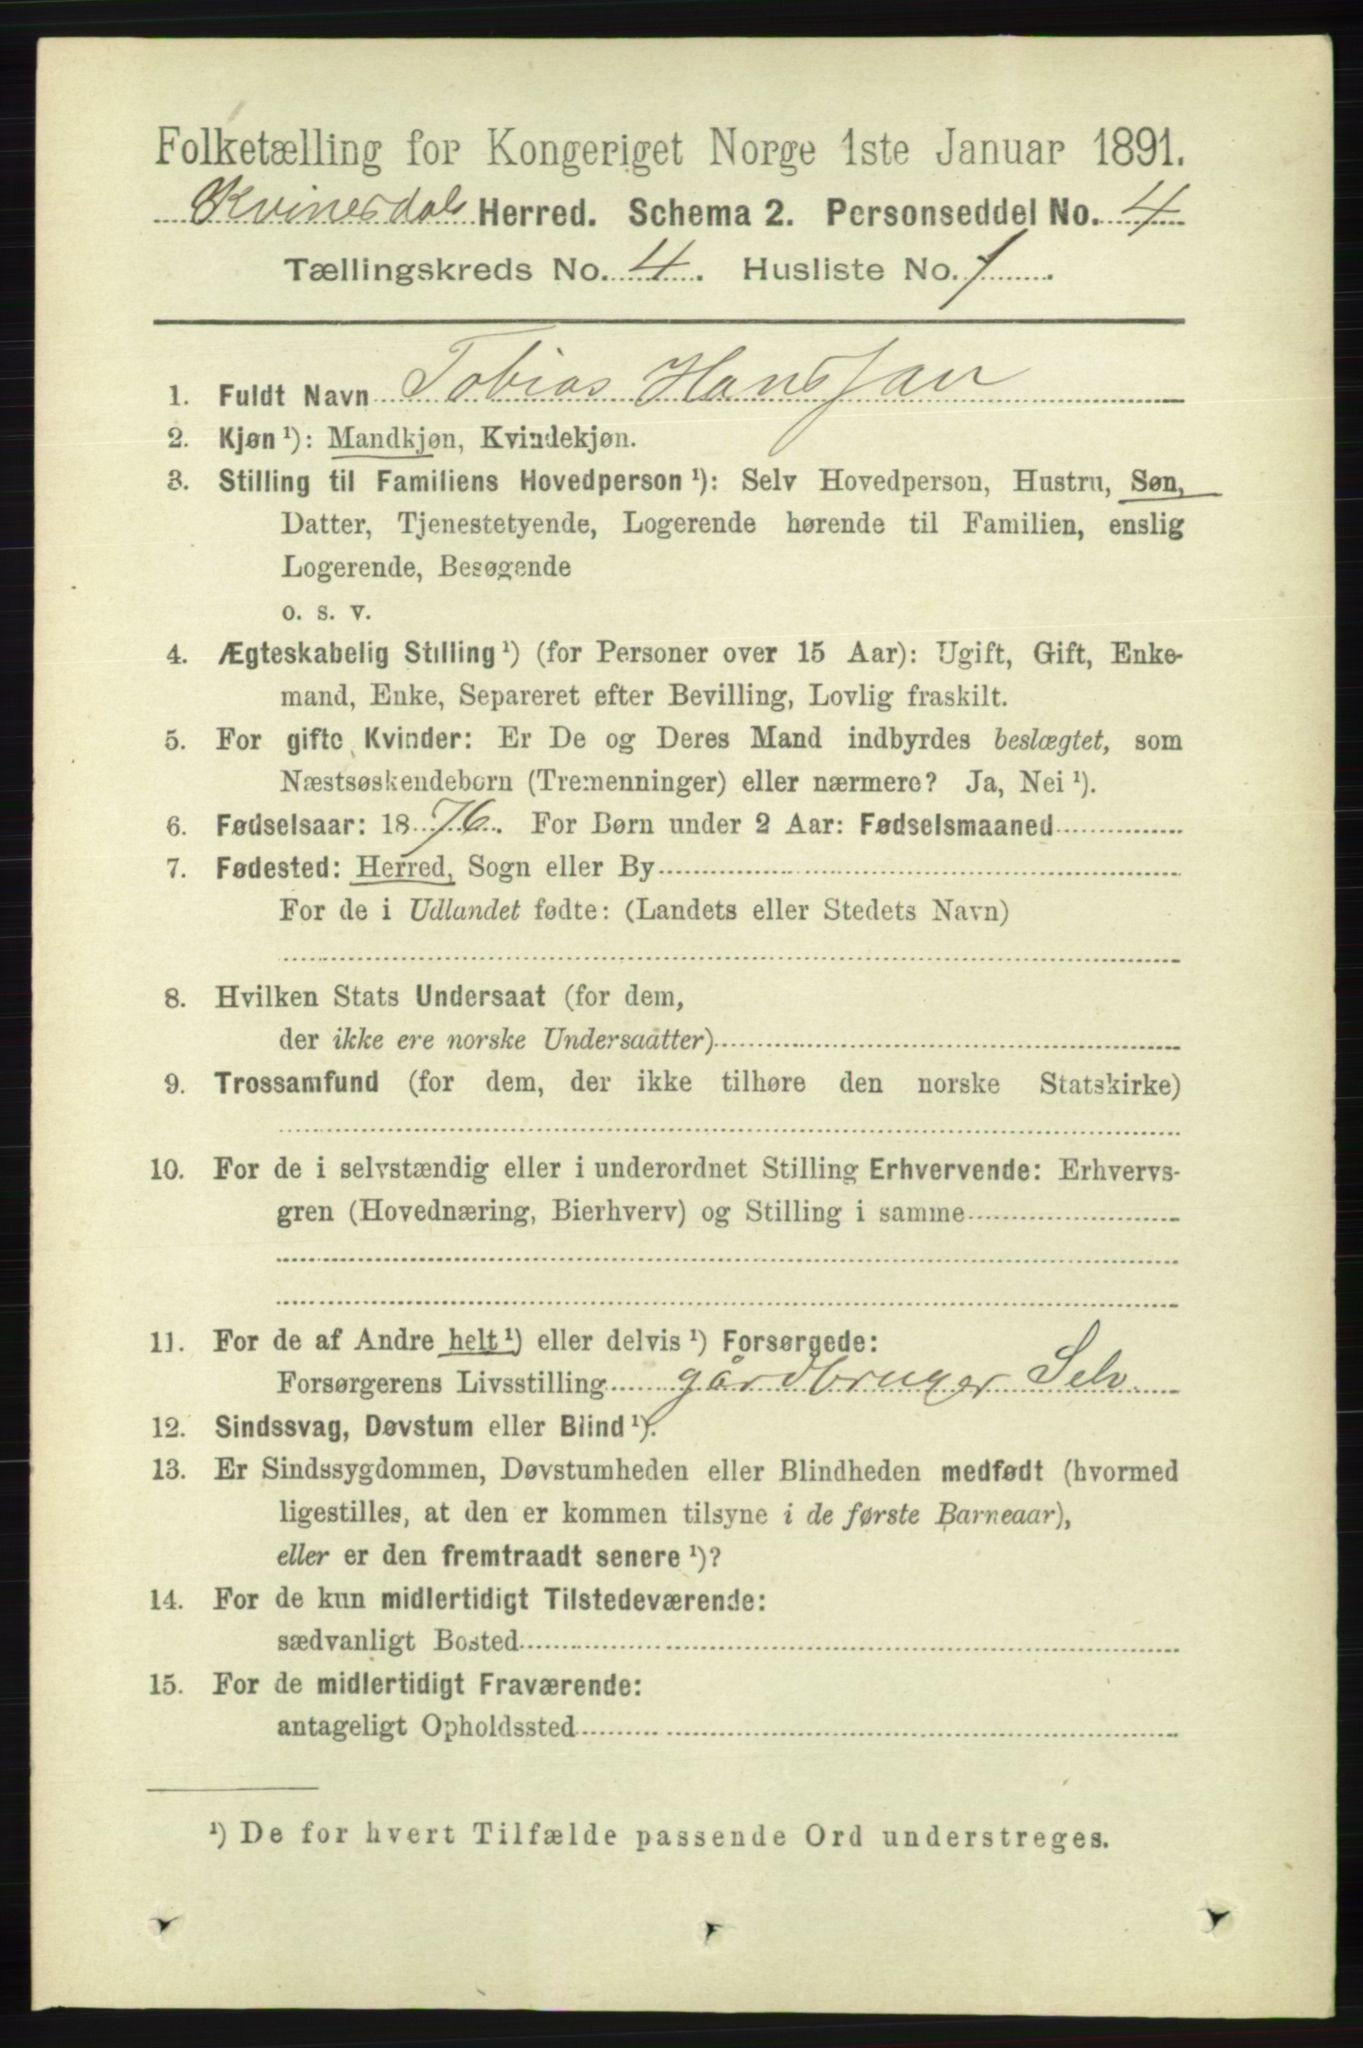 Folketælling for Kongeriget Norge 1ste Januar 1891.
Kvinesdal Herred. Schema 2. Personseddel No. 4
Tællingskreds No. 4. Husliste No. 1.
1. Fuldt Navn Tobias Hans Jan
2. Kjøn ¹): Mandkjøn, Kvindekjøn.
3. Stilling til Familiens Hovedperson ¹): Selv Hovedperson, Hustru, Søn,
Datter, Tjenestetyende, Logerende hørende til Familien, enslig
Logerende, Besøgende
o. s. v.
4. Ægteskabelig Stilling ¹) (for Personer over 15 Aar): Ugift, Gift, Enke-
mand, Enke, Separeret efter Bevilling, Lovlig fraskilt.
5. For gifte Kvinder: Er De og Deres Mand indbyrdes beslægtet, som
Næstsøskendeborn (Tremenninger) eller nærmere? Ja, Nei ¹).
6. Fødselsaar: 1876. For Børn under 2 Aar: Fødselsmaaned
7. Fødested: Herred, Sogn eller By
For de i Udlandet fødte: (Landets eller Stedets Navn)
8. Hvilken Stats Undersaat (for dem,
der ikke ere norske Undersaatter)
9. Trossamfund (for dem, der ikke tilhøre den norske Statskirke)
10. For de i selvstændig eller i underordnet Stilling Erhvervende: Erhvervs-
gren (Hovednæring, Bierhverv) og Stilling i samme
11. For de af Andre helt ¹) eller delvis ¹) Forsørgede:
Forsørgerens Livsstilling gårdbruger Selv.
12. Sindssvag, Døvstum eller Blind ¹).
13. Er Sindssygdommen, Døvstumheden eller Blindheden medfødt (hvormed
ligestilles, at den er kommen tilsyne i de første Barneaar),
eller er den fremtraadt senere ¹)?
14. For de kun midlertidigt Tilstedeværende:
sædvanligt Bosted
15. For de midlertidigt Fraværende:
antageligt Opholdssted
¹) De for hvert Tilfælde passende Ord understreges.